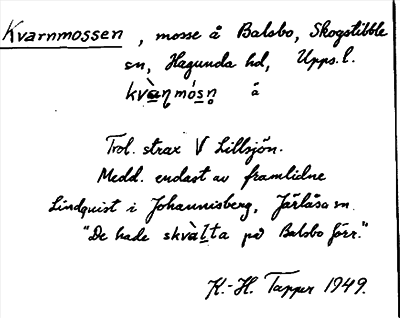 Kvarnmossen, mosse å Balsbo, Skogstibble
sn, Hagunda hd, Upps. l.
kvà̱ɳmósn̥ å
Trol. strax V Lillsjön.
Medd. endast av framlidne
Lindquist i Johannisberg, Järlåsa sn.
"De hade skvàḻta på Balsbo förr."
K.-H. Tapper 1949.